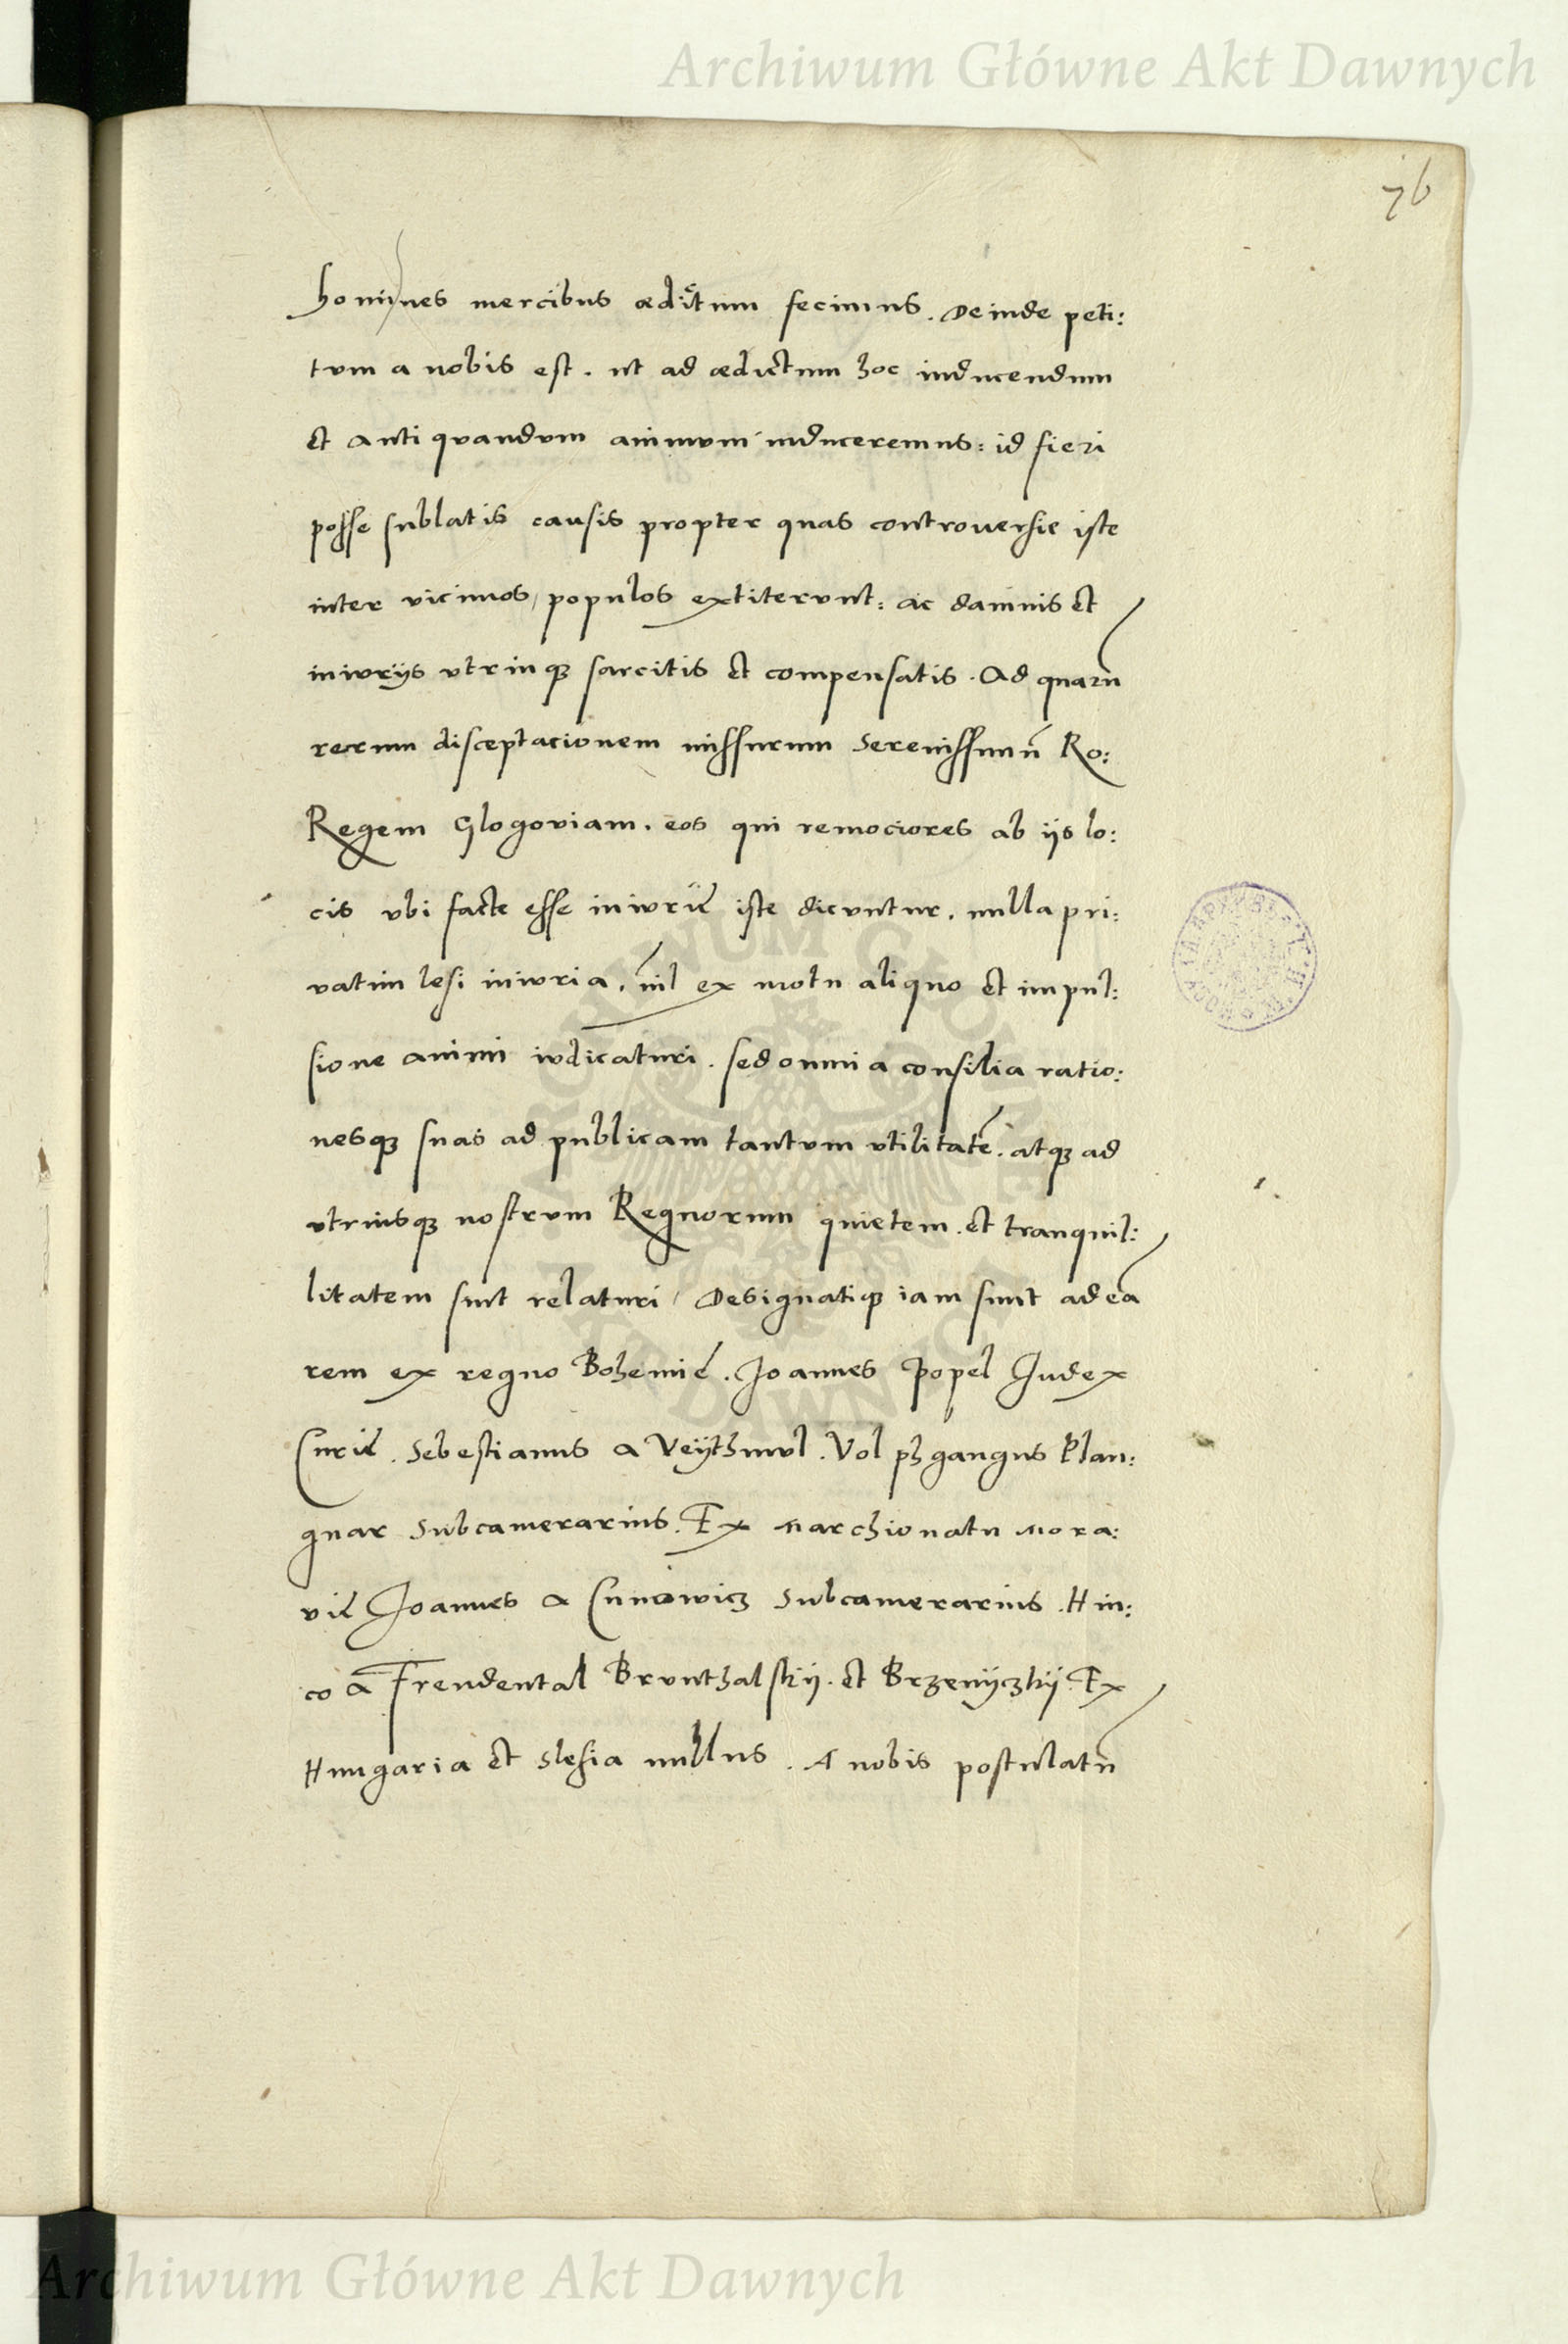 Archiwum Główne Akt Dawnych
76
homines mercibus ædictum fecimus. Deinde peti:
tvm a nobis est. ut ad ædictum hoc inducendum
et antiqvandvm animvm induceremus: id fieri
posse sublatis causis propter quas controuersie iste
inter vicinos, populos extitervnt: ac damnis et
inivriis vtrinq3 sarcitis et compensatis. Ad quarū
rerum disceptacionem missurum Serenissimū Ro:
Regem Glogoviam. eos qui remociores ab iis lo:
cis vbi facte esse inivrię iste dicvntur. nulla pri:
vatim lesi inivria. nīl ex motu aliquo et impul:
sione animi ivdicaturi. sed omnia consilia ratio:
nesq3 suas ad publicam tantvm vtilitatē. atq3 ad
vtriusq3 nostrvm Regnorum quietem. et tranquil:
litatem sint relaturi, Designatiq3 iam sunt ad eā
rem ex regno Bohemię. Joannes Popel Judex
Curię. Sebestianus a Veÿthmvl. Volphgangus Plan:
gnar Subcamerarius. Ex Marchionatu Mora:
vię Joannes a Cunowicz Subcamerarius. Hin:
co a Freudental Brvnthalskÿ. et Brzenÿczkÿ. Ex
Hungaria et Slesia nullus. A nobis postulatū
ARCHIWUM GŁÓWNE
AKT DAWNYCH
Archiwum Główne Akt Dawnych